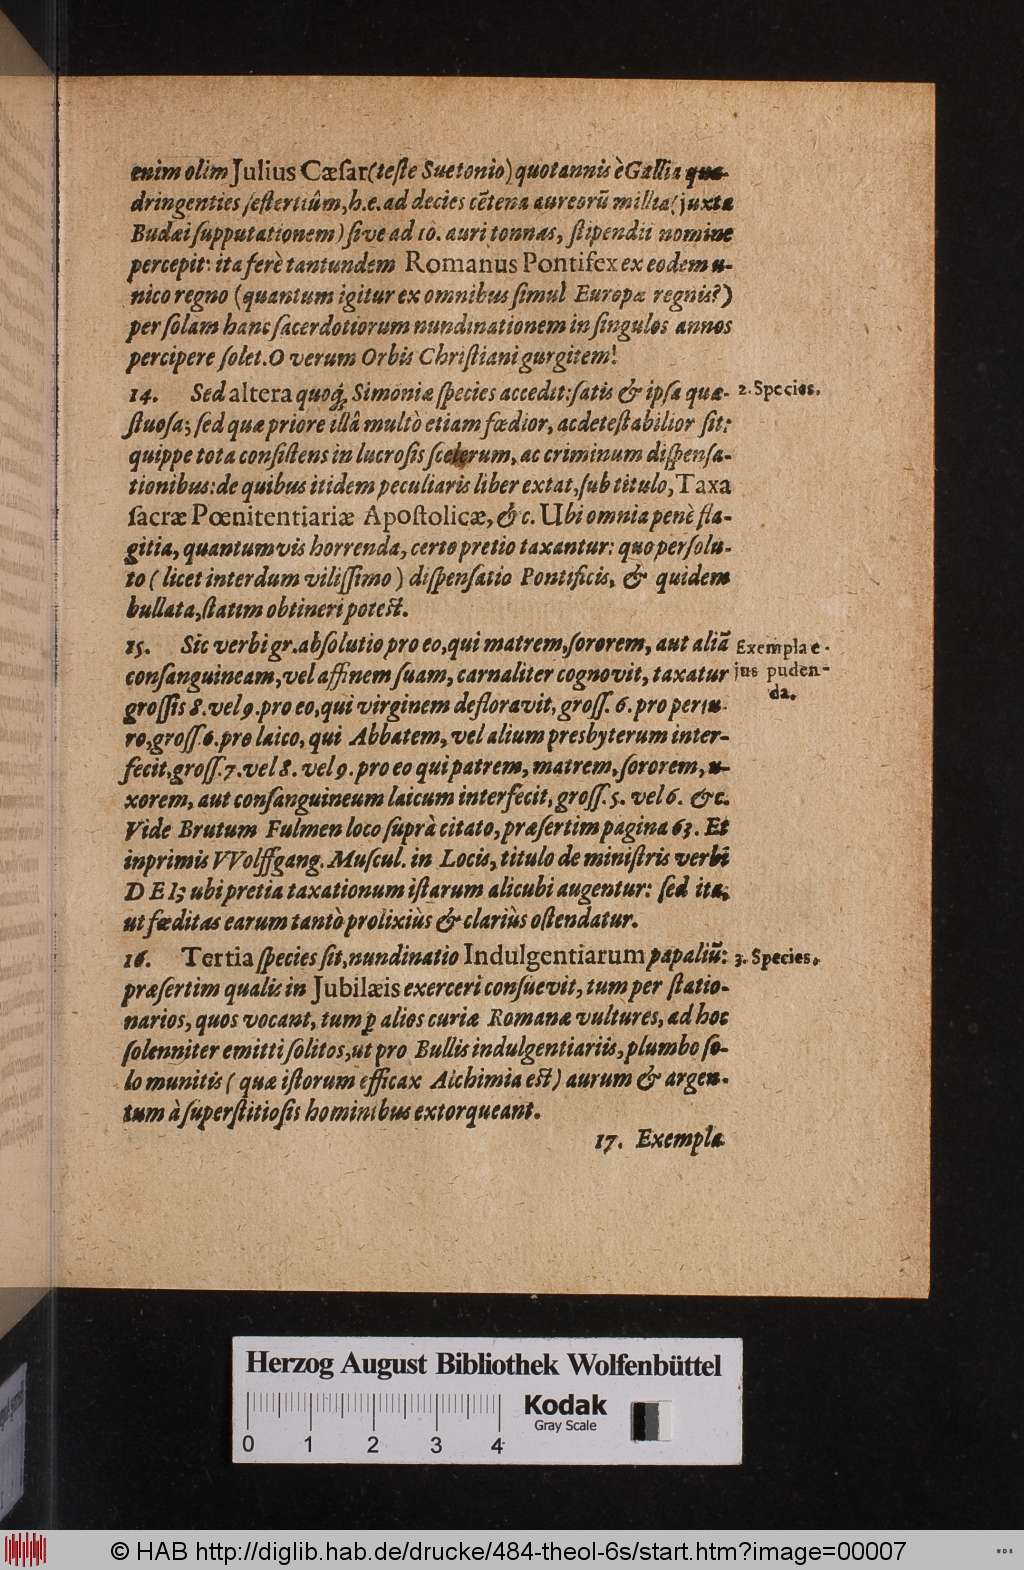 enim olim Julius Cæſar (teſte Suetonio) quotannis è Gallia qua-
dringenties ſeſtertiûm, h.e. ad decies cētena aureorū millia (juxta
Budæi ſupputationem) ſive ad 10. auri tonnas, ſtipendii nomine
percepit: ita ferè tantundem Romanus Pontifex ex eodem u-
nico regno (quantum igitur ex omnibus ſimul Europæ regnis?)
per ſolam hanc ſacerdotiorum nundinationem in ſingulos annos
percipere ſolet. O verum Orbis Chriſtiani gurgitem!
14. Sed altera quoq́; Simoniæ ſpecies accedit: ſatis & ipſa quæ-
2. Species.
ſtuoſa; ſed quæ priore illâ multò etiam fœdior, ac deteſtabilior ſit:
quippe tota conſiſtens in lucroſis ſcelerum, ac criminum diſpenſa-
tionibus: de quibus itidem peculiaris liber extat, ſub titulo, Taxa
ſacræ Pœnitentiariæ Apoſtolicæ, &c. Ubi omnia penè fla-
gitia, quantumvis horrenda, certo pretio taxantur: quo perſolu-
to (licet interdum viliſſimo) diſpenſatio Pontificis, & quidem
bullata, ſtatim obtineri poteſt.
15. Sic verbi gr. abſolutio pro eo, qui matrem, ſororem, aut aliā
Exempla e-
conſanguineam, vel affinem ſuam, carnaliter cognovit, taxatur
jus puden-
groſſis 8. vel 9. pro eo, qui virginem defloravit, groſſ. 6. pro perju-
da.
ro, groſſ. 6. pro laico, qui Abbatem, vel alium presbyterum inter-
fecit, groſſ. 7. vel 8. vel 9. pro eo qui patrem, matrem, ſororem, u-
xorem, aut conſanguineum laicum interfecit, groſſ. 5. vel 6. &c.
Vide Brutum Fulmen loco ſuprà citato, præſertim pagina 63. Et
inprimis VVolffgang. Muſcul. in Locis, titulo de miniſtris verbi
DEI; ubi pretia taxationum iſtarum alicubi augentur: ſed ita;
ut fœditas earum tantò prolixiùs & clariùs oſtendatur.
16. Tertia ſpecies ſit, nundinatio Indulgentiarum papaliū:
3. Species.
præſertim qualis in Jubilæis exerceri conſuevit, tum per ſtatio-
narios, quos vocant, tum ꝑ alios curiæ Romanæ vultures, ad hoc
ſolenniter emitti ſolitos, ut pro Bullis indulgentiariis, plumbo ſo-
lo munitis (quæ iſtorum efficax Alchimia eſt) aurum & argen-
tum à ſuperſtitioſis hominibus extorqueant.
17. Exempla
Herzog August Bibliothek Wolfenbüttel
Kodak
Gray Scale
0 1 2 3 4
© HAB http://diglib.hab.de/drucke/484-theol-6s/start.htm?image=00007